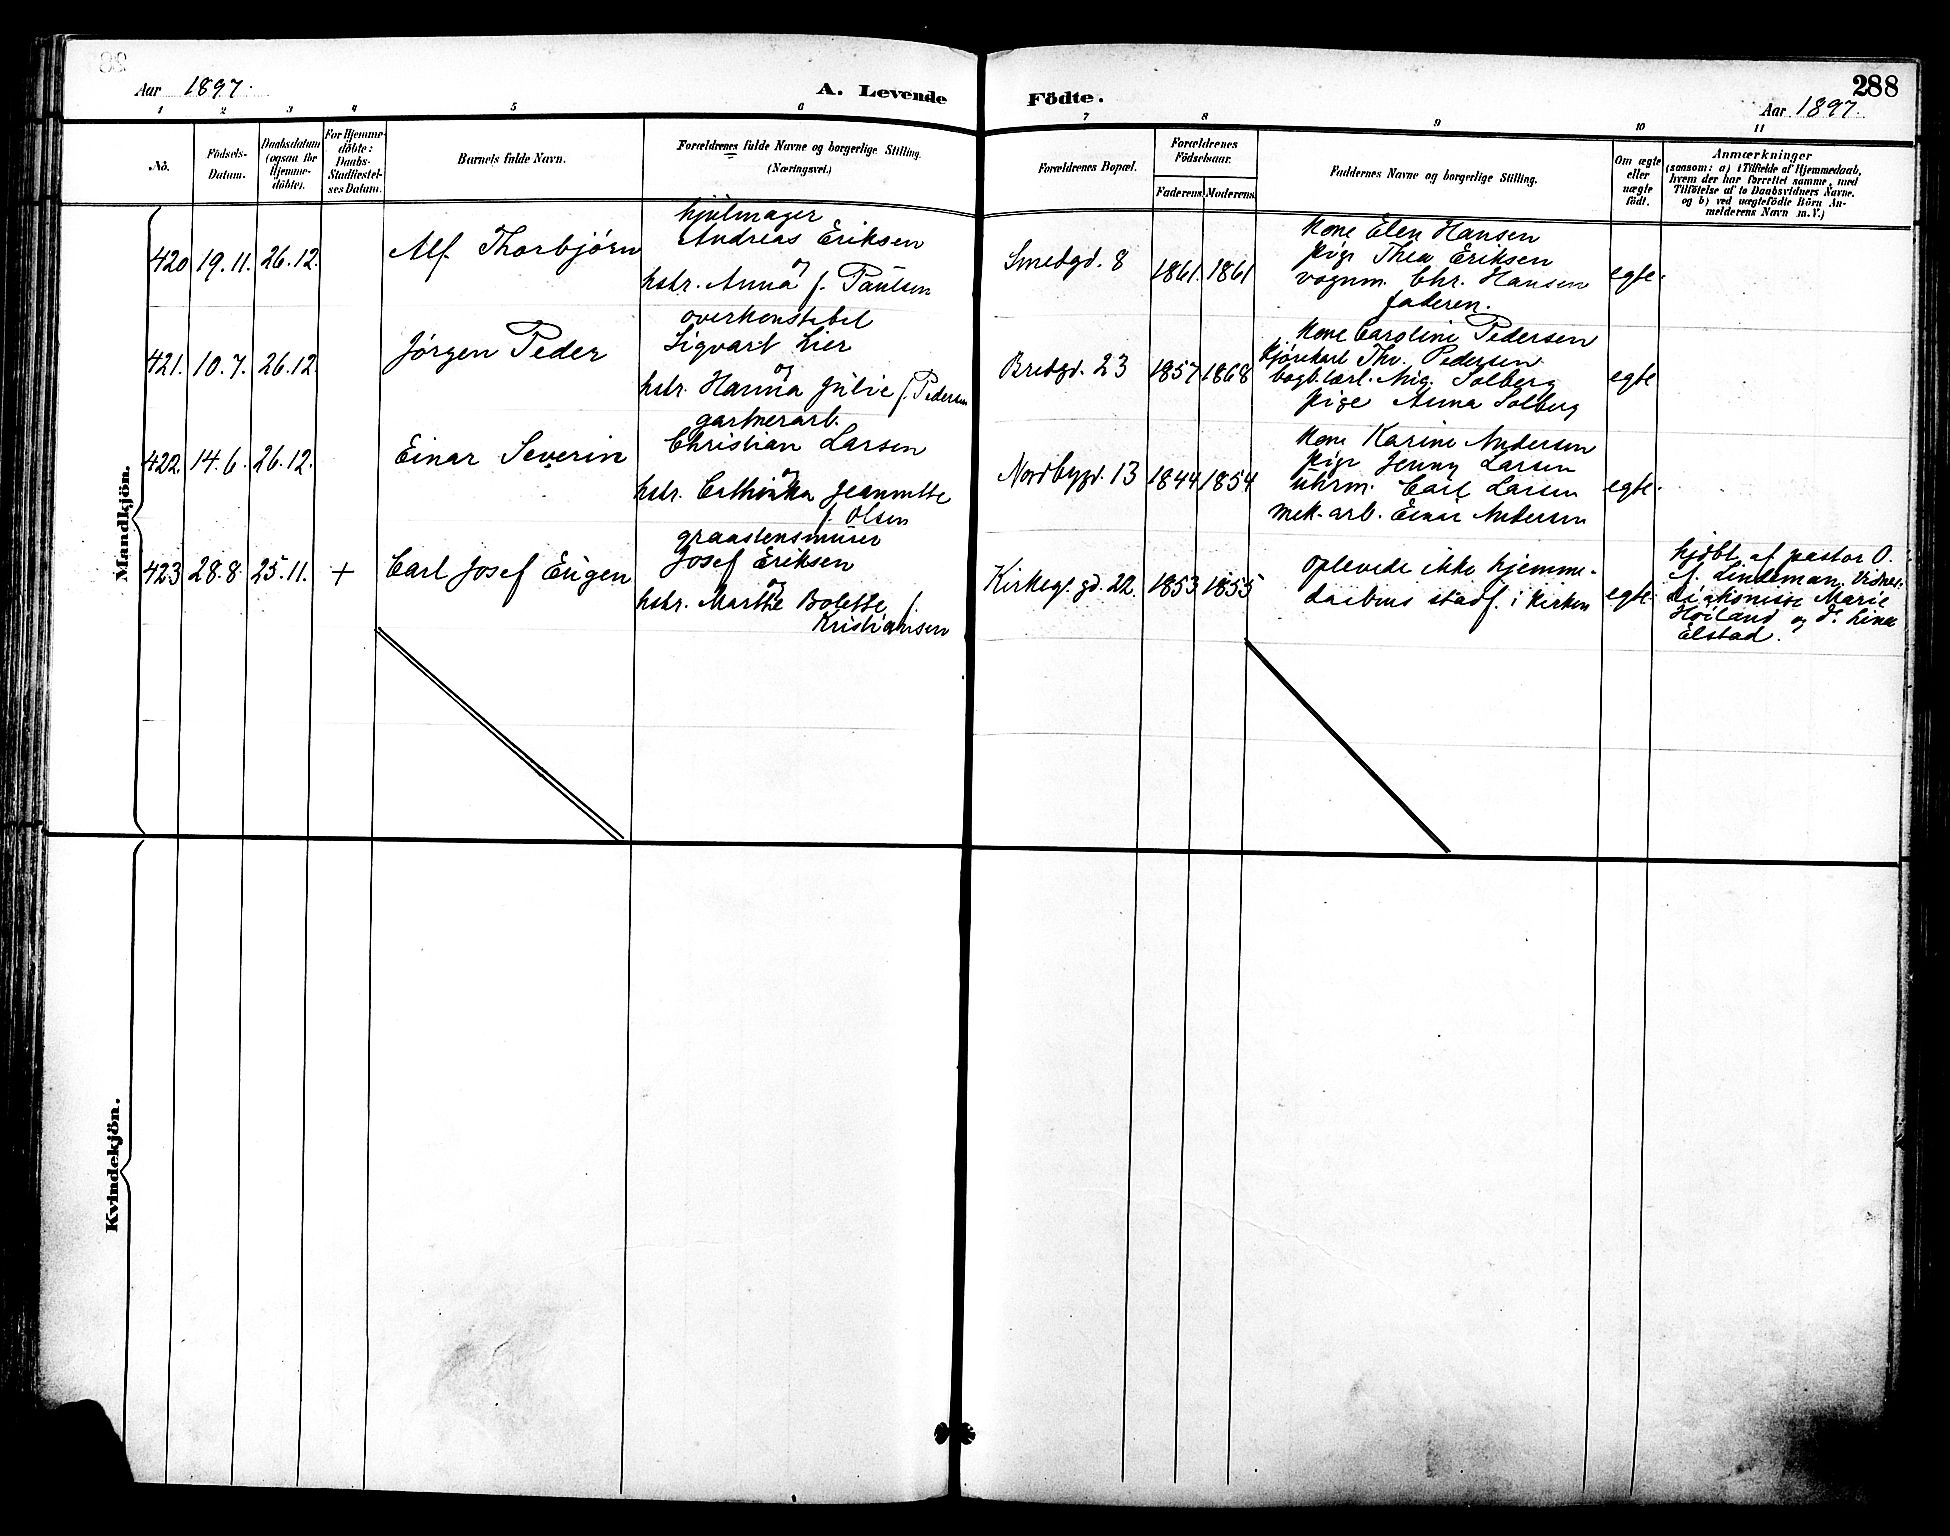 Aar 1897.
A. Levende
Födte.
288
Aar 1897.
1 2 3 4 5 6 7 8 9 10 11
No.
Födsels-
Datum.
Daabsdatum
(ogsaa for
Hjemme-
döbte).
For Hjemme-
döbte:
Daabs-
Stadfæstel-
ses Datum.
Barnets fulde Navn.
Forældrenes fulde Navne og borgerlige Stilling.
(Næringsvei.)
Forældrenes Bopæl.
Forældrenes
Födselsaar.
Faderens Moderens
Faddernes Navne og borgerlige Stilling.
Om ægte
eller
uægte
födt.
Anmærkninger
(saasom: a) i Tilfælde af Hjemmedaab,
hvem der har forrettet samme, med
Tilföielse af to Daabsvidners Navne.
og b) ved uægtefödte Börn An-
melderens Navn m. V.)
Mandkjön.
420 19.11. 26.12. Alf Thorbjörn
hjulmager
Andreas Eriksen
og
hstr. Anna f. Paulsen
Smedgd. 8 1861. 1861
kone Elen Hansen
pige Thea Eriksen
vognm. Chr. Hansen
faderen.
egte.
421. 10.7. 26.12. Jörgen Peder
overkonstabel
Sigvart Lier
og
hstr. Hanna Julie f. Pedersen
Bredgd. 23 1857 1868
kone Caroline Pedersen
kjörekarl Thv. Pedersen
bogb.lærl. Aug. Solberg
pige Anna Solberg
egte
422 14.6. 26.12. Einar Severin
gartnerarb.
Christian Larsen
og
hstr. Cathinka Jeanette
f. Olsen
Nordbygd. 13 1844 1854
kone Karine Andersen
pige Jenny Larsen
uhrm. Carl Larsen
mek. arb. Einar Andersen
egte.
423 28.8. 25.11. + Carl Josef Eugen
graastensmurer
Josef Eriksen
og
hstr. Marthe Bolette f.
Kristiansen
Kirkeg. gd. 22. 1853 1855
oplevede ikke hjemme-
daabens stadf. i kirken
egte
hjdbt. af pastor O.
A. Lindeman. Vidner
diakonisse Marie
Höiland og do Lina
Elstad.
Kvindekjön.